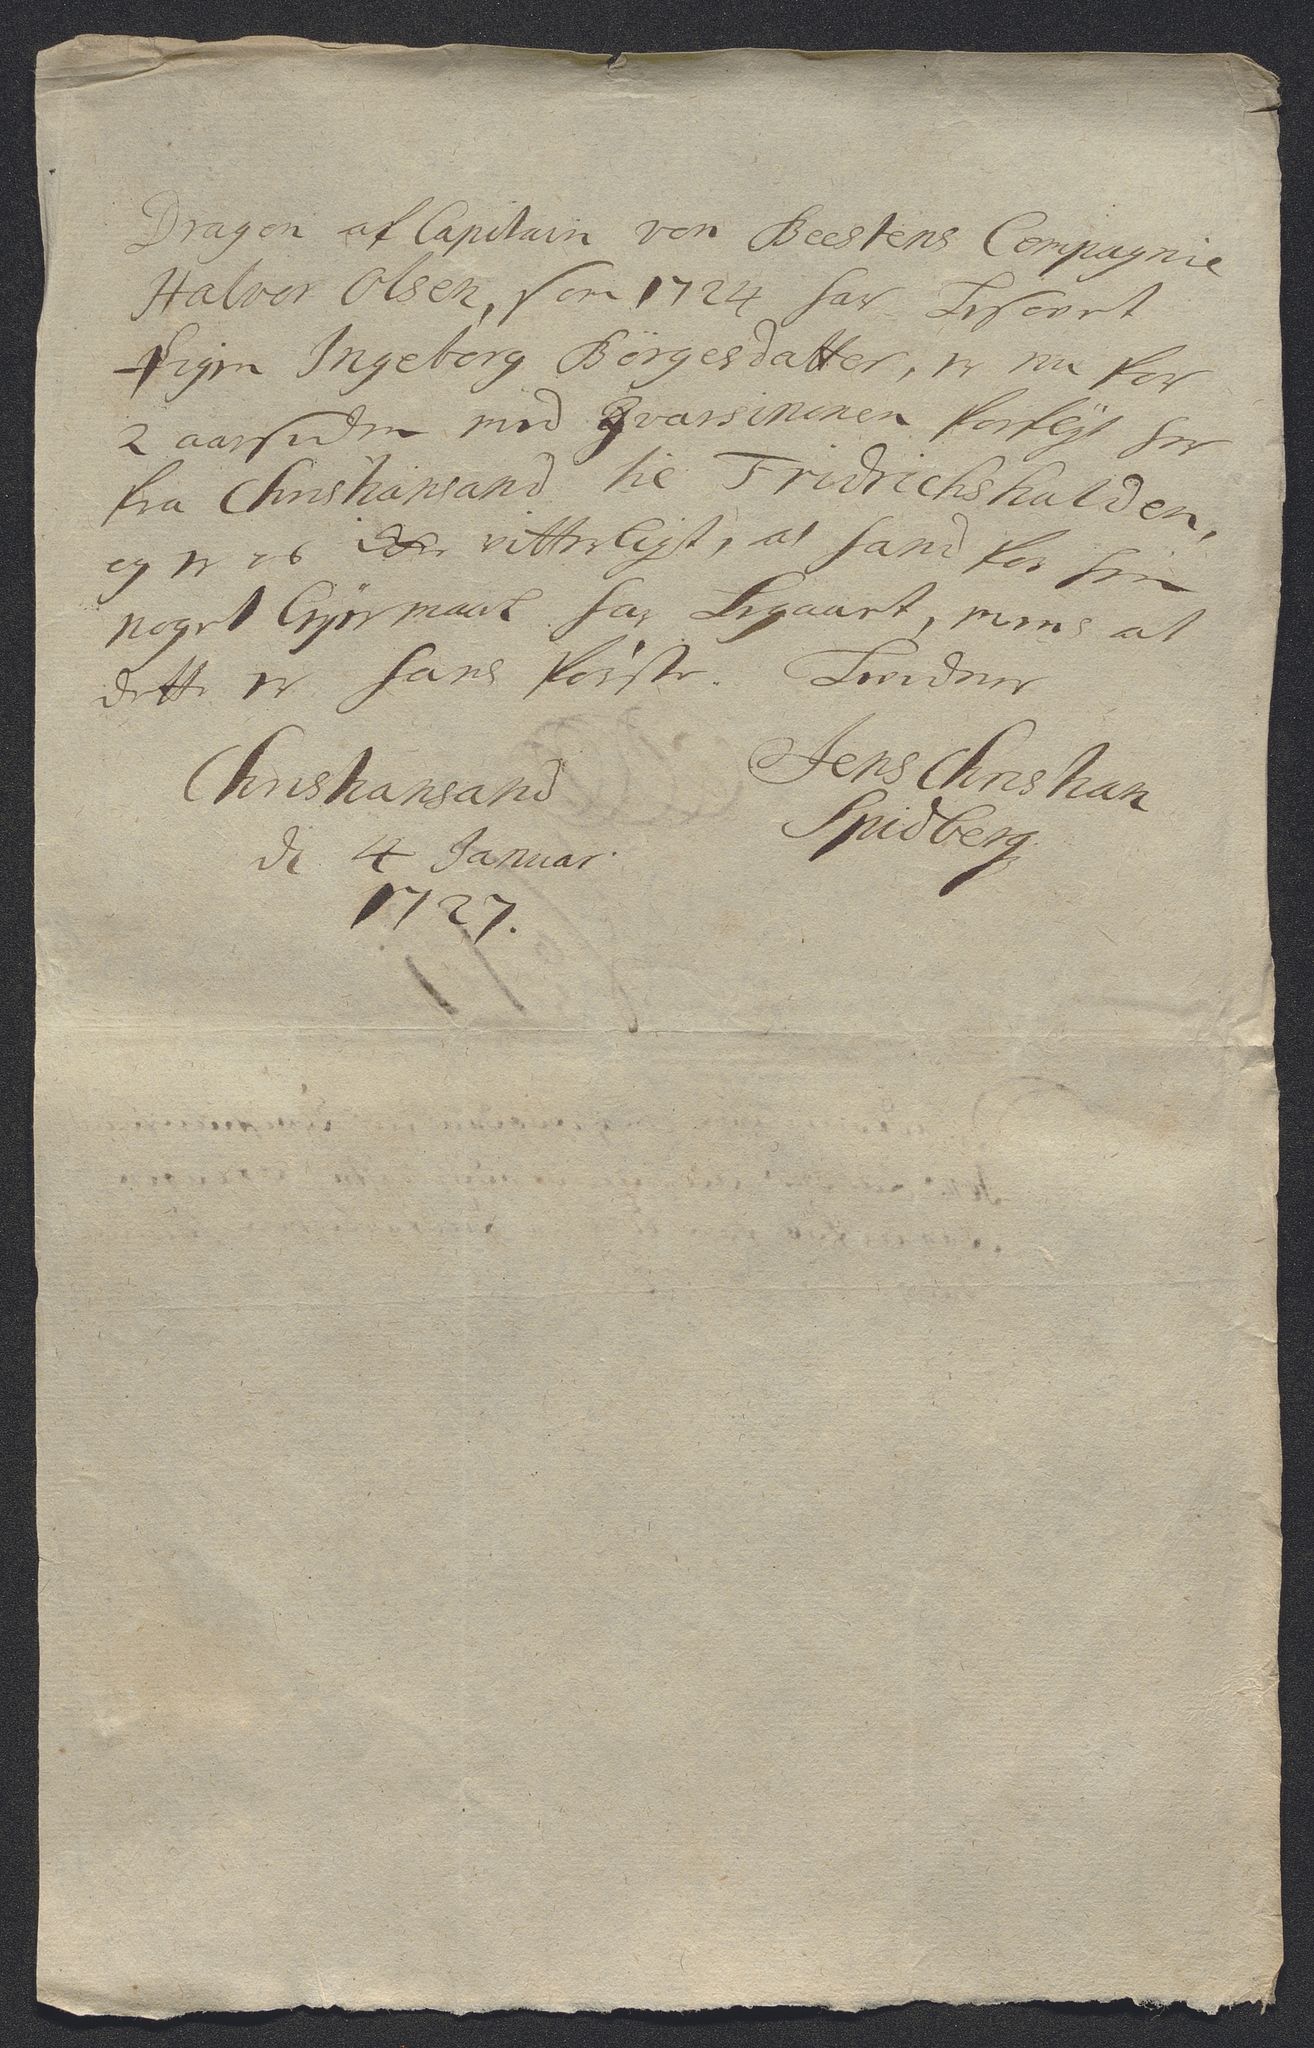 Dragon af Capitain von Beestens Compagnie
Halvor Olsen, som 1724 har besovet
Pigen Ingeborg Börgesdatter, er nu for
2 aar siden med Gvarsinonen forlagt her
fra Christiansand til Fridrichshalden,
og er os icke vitterligt, at hand før hen
noget Leyermaal har begaaet, mens at
dette er hans første. Testerer
Christiansand
de 4 Januar.
1727.
Jens Christian
Spidberg.